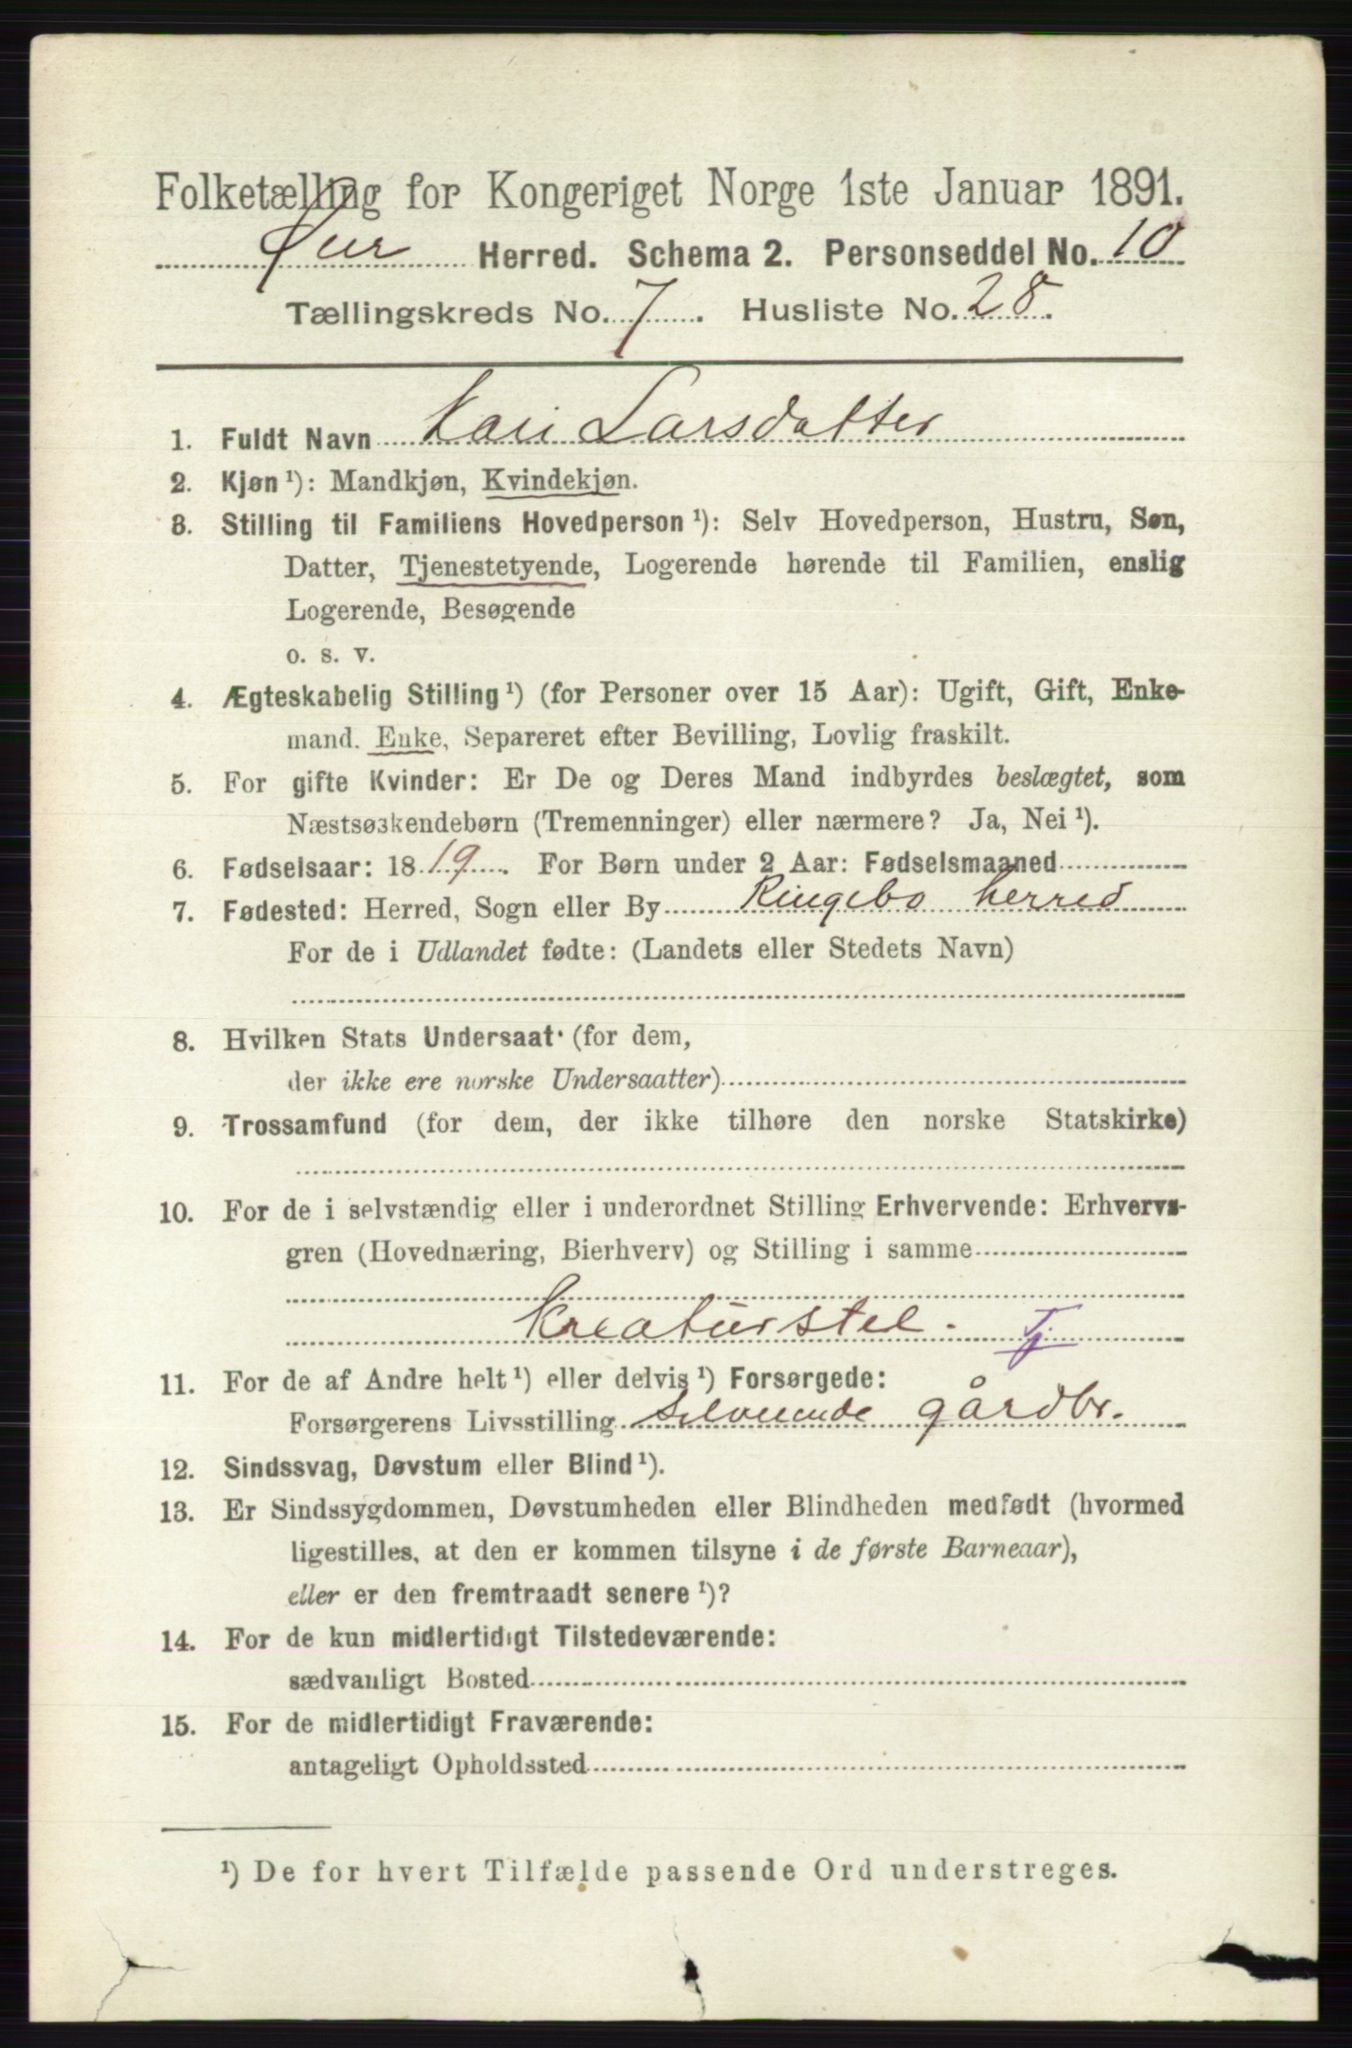 Folketælling for Kongeriget Norge 1ste Januar 1891.
Øier Herred. Schema 2. Personseddel No. 10
Tællingskreds No. 7. Husliste No. 28.
1. Fuldt Navn Kari Larsdatter
2. Kjøn ¹): Mandkjøn, Kvindekjøn.
3. Stilling til Familiens Hovedperson ¹): Selv Hovedperson, Hustru, Søn,
Datter, Tjenestetyende, Logerende hørende til Familien, enslig
Logerende, Besøgende
o. s. v.
4. Ægteskabelig Stilling ¹) (for Personer over 15 Aar): Ugift, Gift, Enke-
mand. Enke, Separeret efter Bevilling, Lovlig fraskilt.
5. For gifte Kvinder: Er De og Deres Mand indbyrdes beslægtet, som
Næstsøskendebørn (Tremenninger) eller nærmere? Ja, Nei ¹).
6. Fødselsaar: 1819. For Børn under 2 Aar: Fødselsmaaned
7. Fødested: Herred, Sogn eller By Ringebo herred
For de i Udlandet fødte: (Landets eller Stedets Navn)
8. Hvilken Stats Undersaat (for dem,
der ikke ere norske Undersaatter)
9. Trossamfund (for dem, der ikke tilhøre den norske Statskirke)
10. For de i selvstændig eller i underordnet Stilling Erhvervende: Erhvervs-
gren (Hovednæring, Bierhverv) og Stilling i samme
Kreaturstel. Tj.
11. For de af Andre helt ¹) eller delvis ¹) Forsørgede:
Forsørgerens Livsstilling Selveiende gårdbr.
12. Sindssvag, Døvstum eller Blind ¹).
13. Er Sindssygdommen, Døvstumheden eller Blindheden medfødt (hvormed
ligestilles, at den er kommen tilsyne i de første Barneaar),
eller er den fremtraadt senere ¹)?
14. For de kun midlertidigt Tilstedeværende:
sædvanligt Bosted
15. For de midlertidigt Fraværende:
antageligt Opholdssted
¹) De for hvert Tilfælde passende Ord understreges.